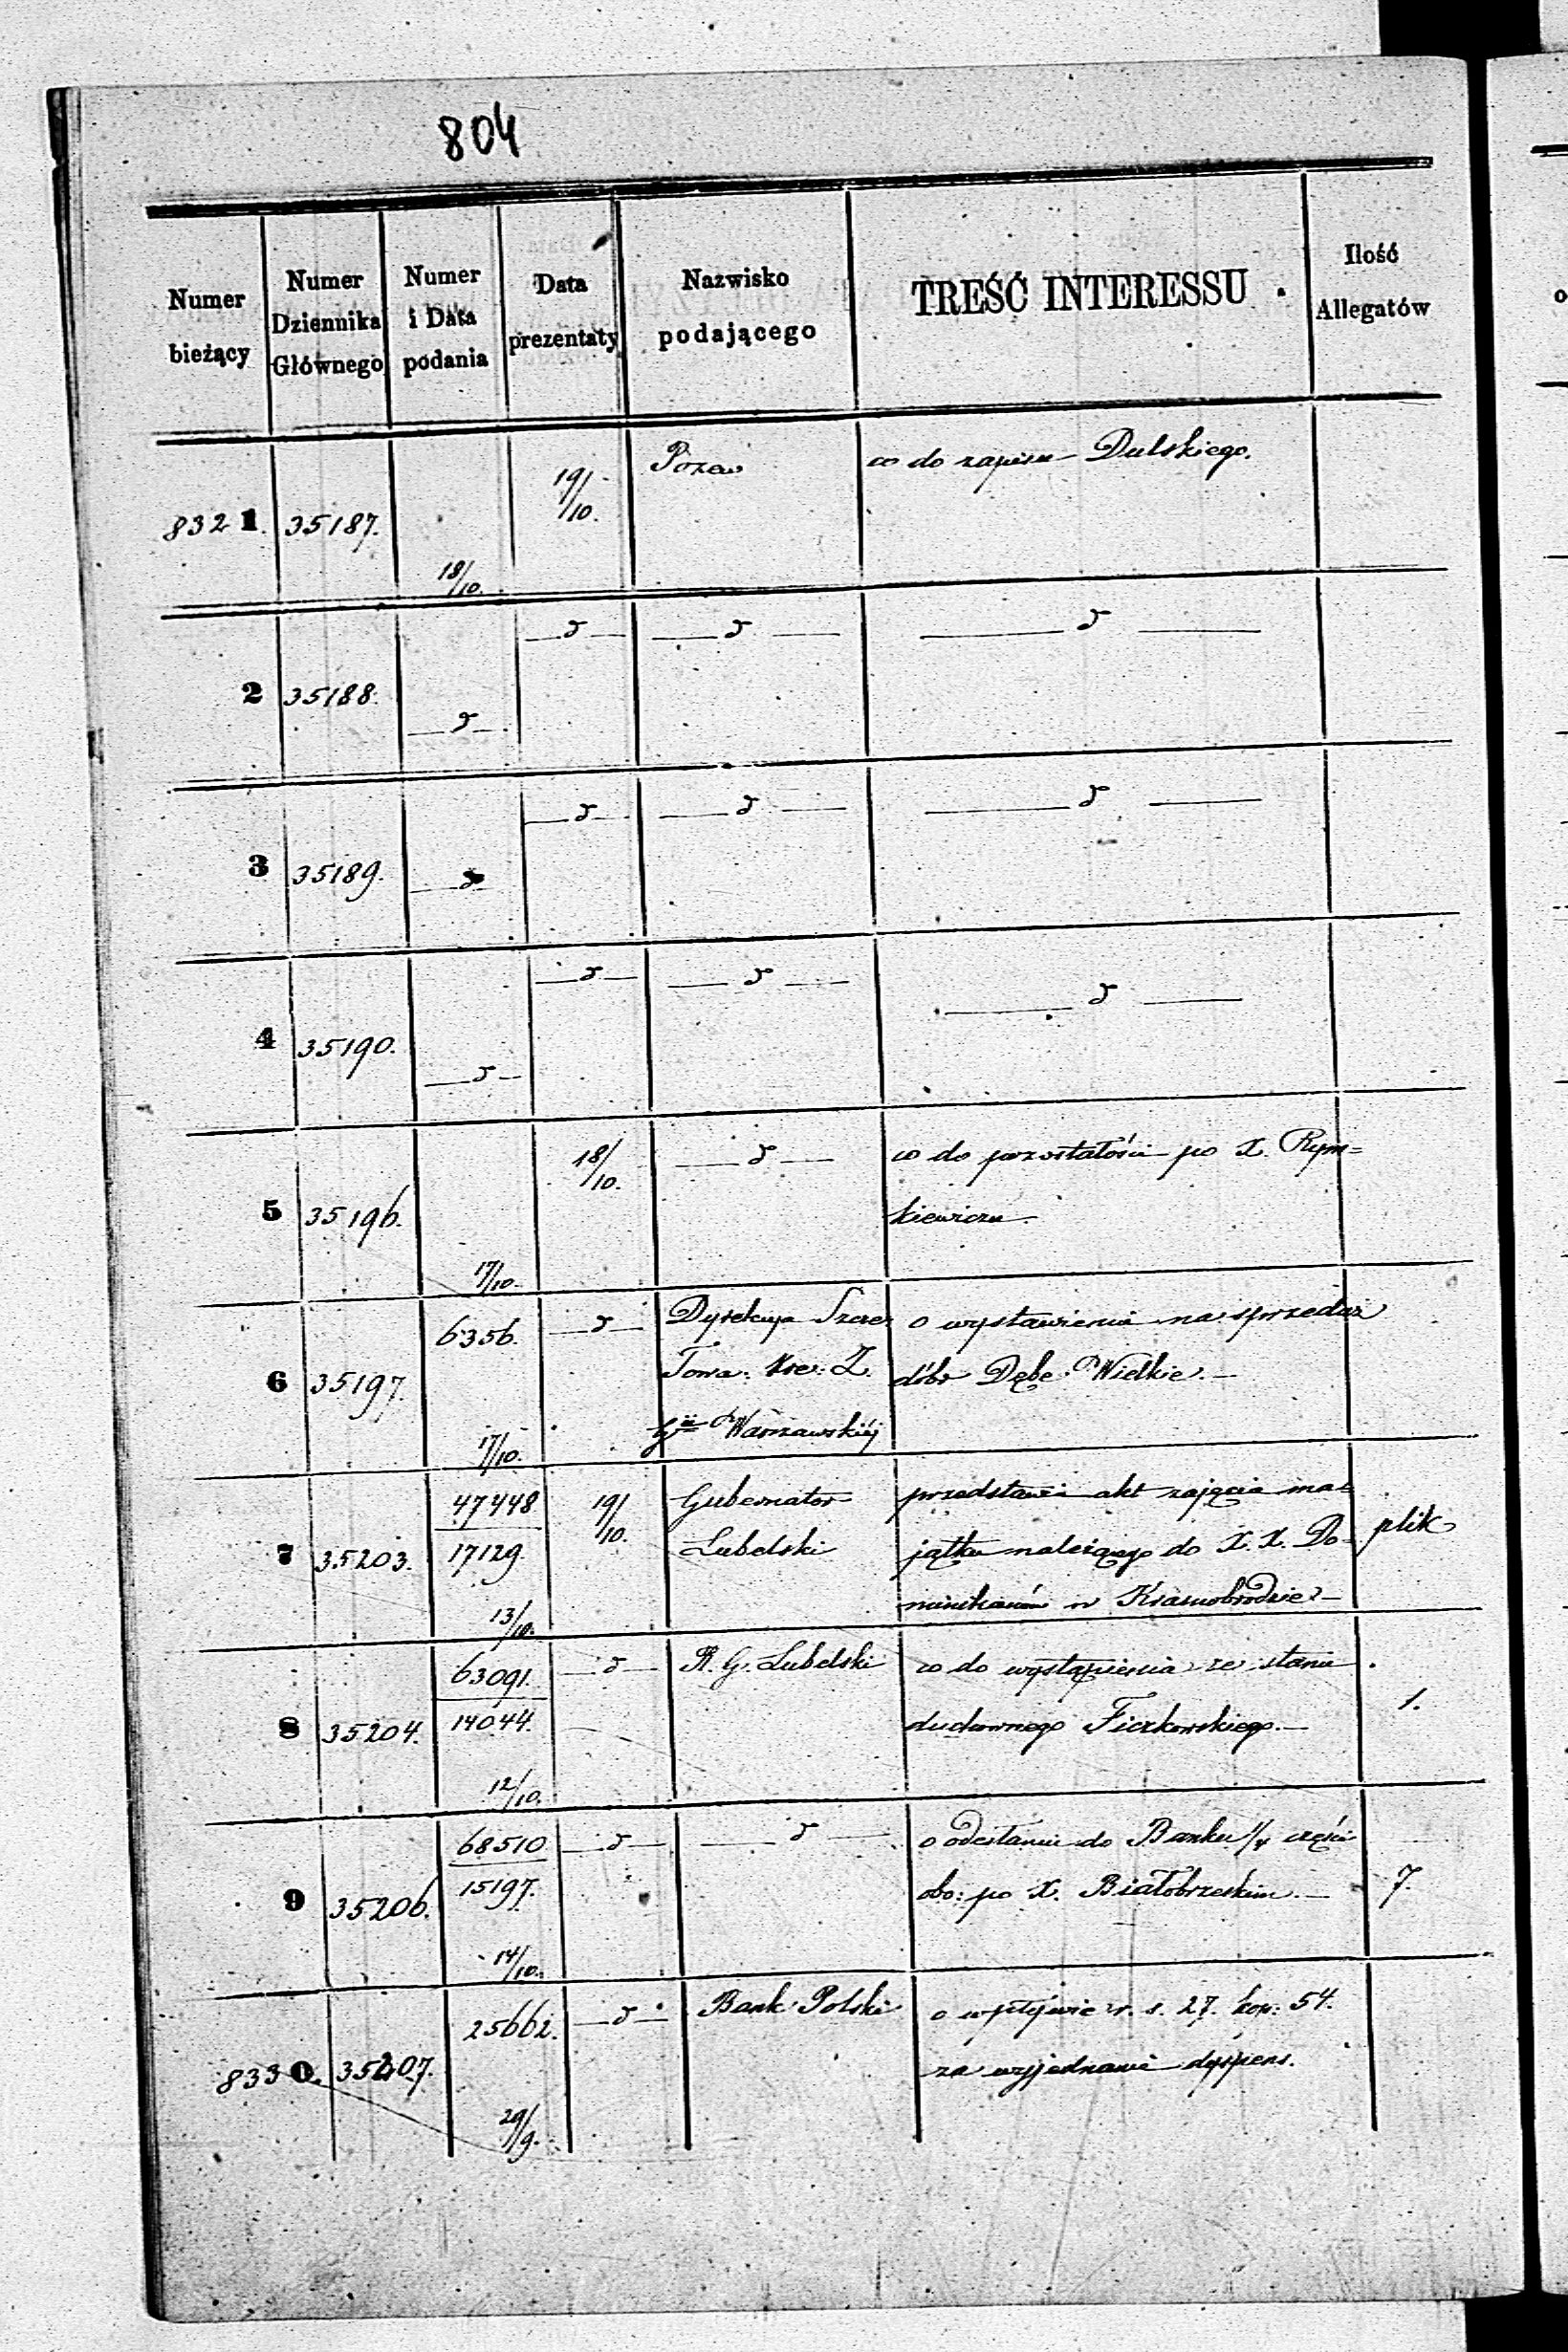 804
Numer bieżący
Numer Dziennika Głównego
Numer i Data podania
Data prezentaty
Nazwisko podającego
TREŚĆ INTERESSU
Ilość Allegatów
8321. 35187. 18/10. 19/10. Pozew co do zapisu Dulskiego.
2 35188. —d— —d— —d— —d—
3 35189. —d— —d— —d— —d—
4 35190. —d— —d— —d— —d—
5 35196. 17/10. 18/10. —d— co do pozostałości po X. Rym=
kiewiczu.
6 35197. 6356. 17/10. —d— Dyrekcya Szcze: o wystawieniu na sprzedaż
Towa: Kre: Z. dóbr Dębe Wielkie.—
Gii Warszawskiéj
7 35203. 47448 19/10. Gubernator przedstawia akt zajęcia ma=
17129. Lubelski jątku należącego do X.X. Do- plik
13/10. minikanów w Krasnobrodzie—
8 35204. 63091. —d— R. G. Lubelski co do wystąpienia ze stanu
14044. duchownego Ficzkowskiego.— 1.
12/10.
9 35206. 68510. —d— —d— o odesłaniu do Banku 1/4 części
15197. obo: po X. Białobrzeskim.— 7.
14/10.
8330. 35207. 25662. —d— Bank Polski o wpływie r. s. 27. kop: 54.
29/9. za wyjednanie dyspens.